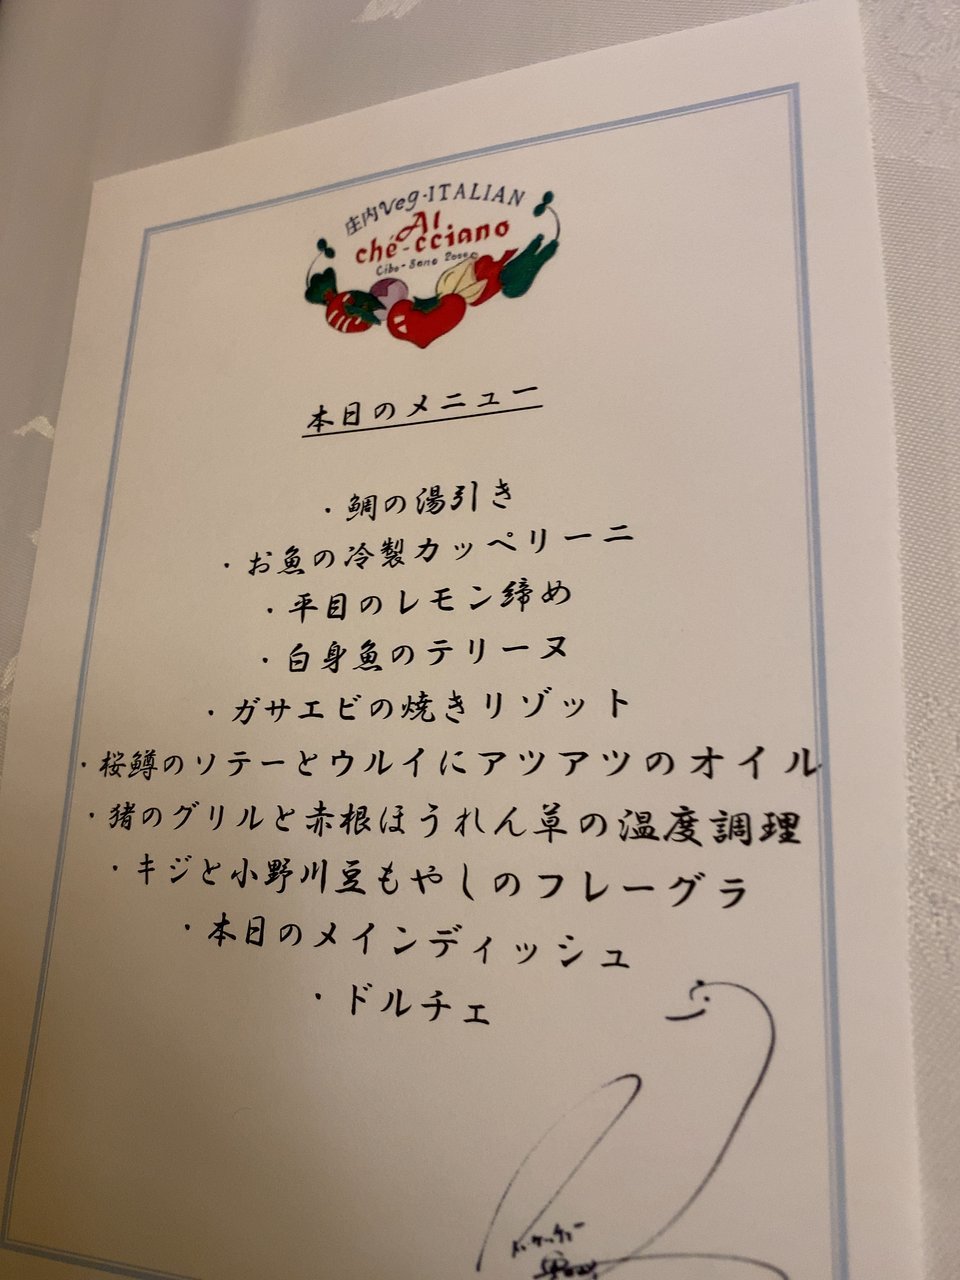 庄内Veg-ITALIAN
Al
ché-cciano
本日のメニュー
・鯛の湯引き
・お魚の冷製カッペリーニ
・平目のレモン締め
・白身魚のテリーヌ
・ガサエビの焼きリゾット
・桜鱒のソテーとウルイにアツアツのオイル
・猪のグリルと赤根ほうれん草の温度調理
・キジと小野川豆もやしのフレーグラ
・本日のメインディッシュ
・ドルチェ